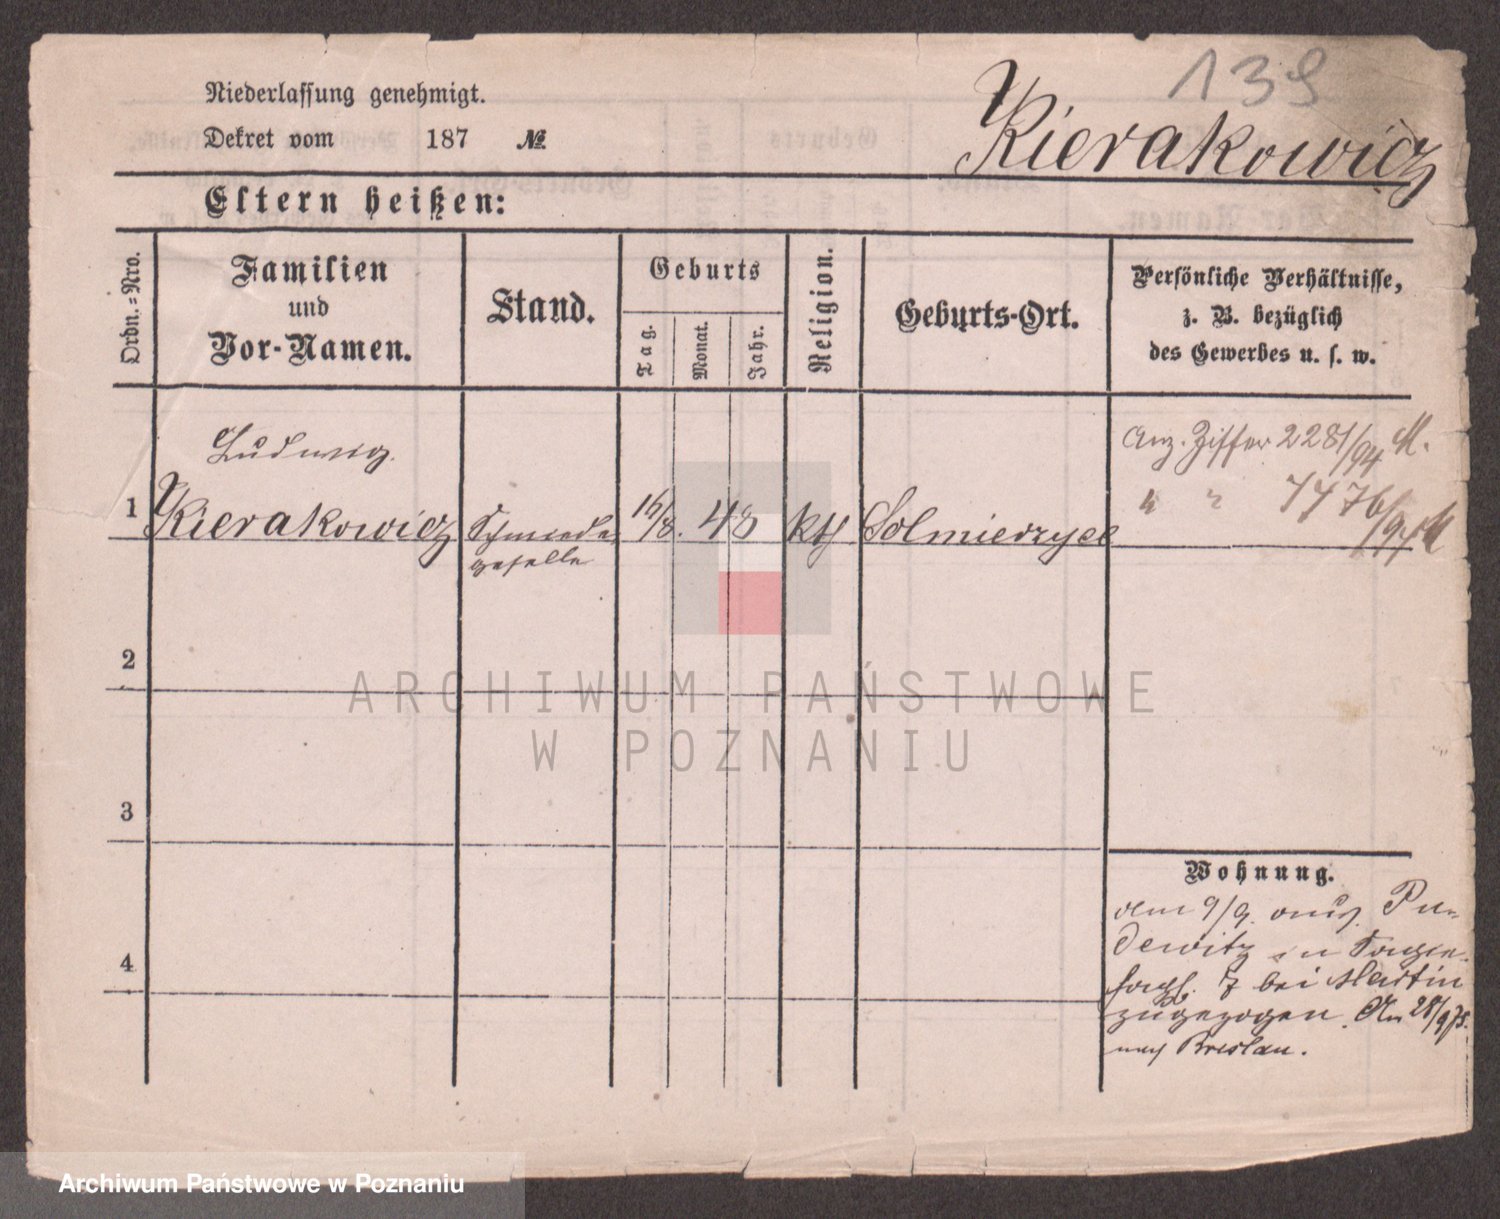 139
Niederlassung genehmigt.
Kierakowicz
Dekret vom 187 №
Eltern heißen:
Ordn.=Nro.
Familien
und
Vor-Namen.
Stand.
Geburts
Tag.
Monat.
Jahr.
Religion.
Geburts-Ort.
Persönliche Verhältnisse,
z. B. bezüglich
des Gewerbes u. s. w.
Ludwig
Anz. Ziffer 2281/94 M.
1 Kierakowicz Schmiede
geselle
16/8. 48 kth Solmierzyce
2
3
4
Wohnung.
dem 9/9. aus Pu-
dewitz in
7 bei Martin
zugezogen. Am 28/9 75.
nach Breslau.
ARCHIWUM PAŃSTWOWE
W POZNANIU
Archiwum Państwowe w Poznaniu